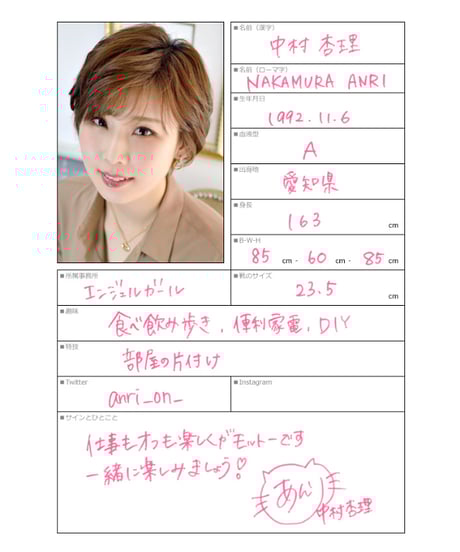 ■名前（漢字）
中村 杏理
■名前（ローマ字）
NAKAMURA ANRI
■生年月日
1992.11.6
■血液型
A
■出身地
愛知県
■身長
163 cm
■B-W-H
85 cm - 60 cm - 85 cm
■所属事務所
エンジェルガール
■靴のサイズ
23.5 cm
■趣味
食べ飲み歩き、便利家電、DIY
■特技
部屋の片付け
■Twitter
anri_on_
■Instagram
■サインとひとこと
仕事もオフも楽しくがモットーです
一緒に楽しみましょう♡
あんり
中村杏理